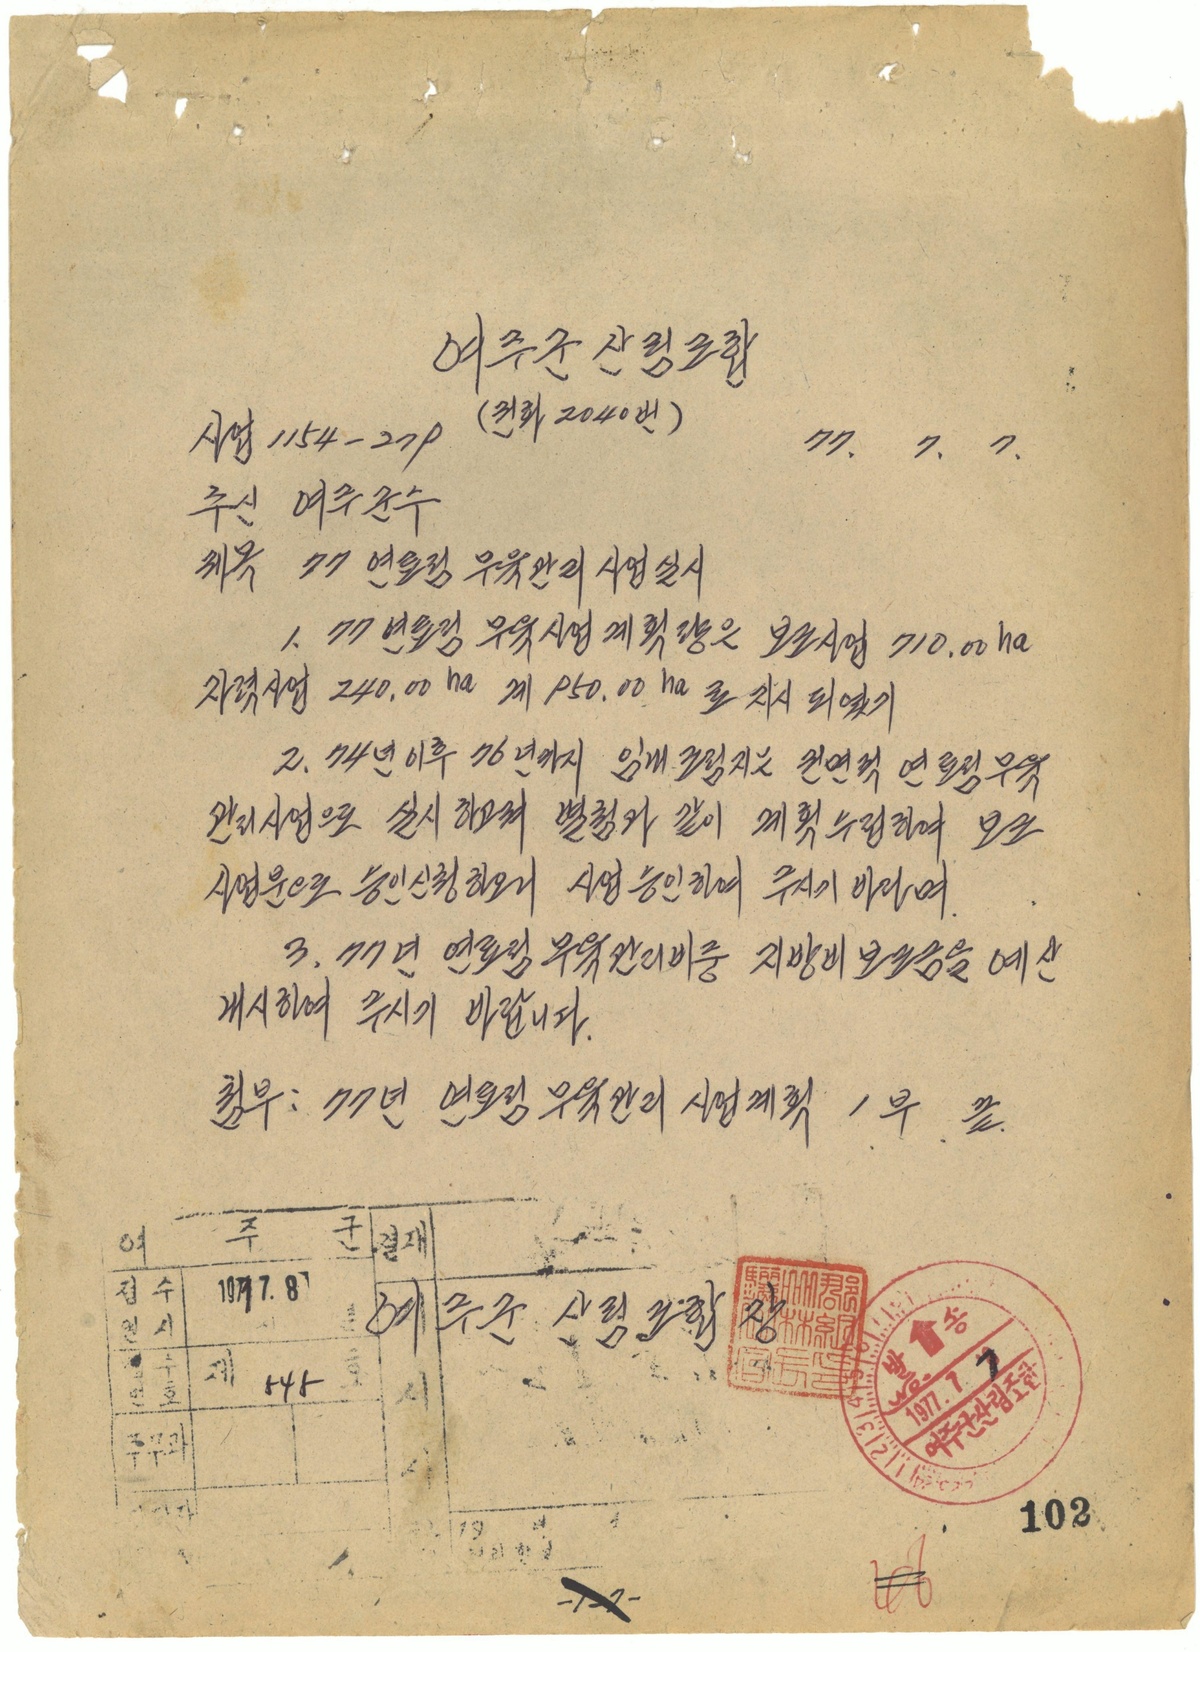 여주군 산림조합
(전화 2040번)
사업 1154-279 77. 7. 7.
수신 여주군수
제목 77 연료림 무육관리 사업실시
1. 77 연료림 무육사업 계획량은 보조사업 710.00 ha
자력사업 240.00 ha 계 950.00 ha 로 지시 되였기
2. 74년이후 76년까지 임내 조림지는 전면적 연료림무육
관리사업으로 실시 하고져 별첨과 같이 계획수립하여 보조
사업분으로 승인신청하오니 사업승인하여 주시기 바라며
3. 77년 연료림 무육관리비중 지방비 보조금을 예산
개시하여 주시기 바랍니다.
첨부: 77년 연료림 무육관리 사업계획 1부 끝.
여주군 결재
접수 1977.7.8
일시
제 545 호
주무과
여주군 산림조합장
발송
1977. 7. 7
여주군산림조합
102
-127-